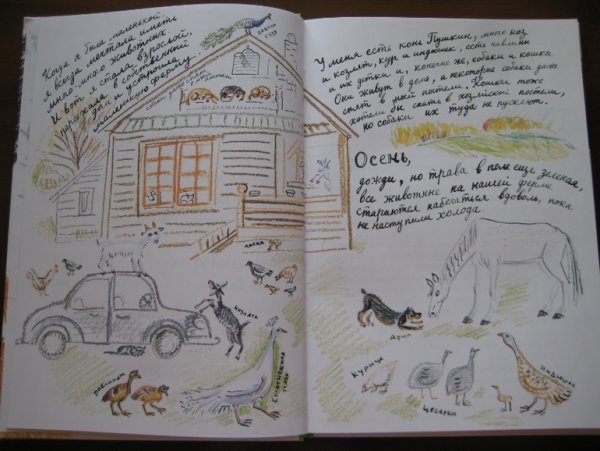 Когда я была маленькой,
я всегда мечтала иметь
много, много животных
И вот я стала взрослой,
переехала в собственный
дом и устроила
маленькую ферму.
павлин
собаки даже спят
в постели
ласка
козлята
павлинята
индюшка
У меня есть конь Пушкин, много коз
и козлят, кур и индюшек, есть павлины
и их детки и, конечно же, собаки и кошка.
Они живут в доме, а некоторые собаки даже
спят в моей постели. Кошки тоже
хотели бы спать в хозяйской постели,
но собаки их туда не пускают.
Осень,
дожди, но трава в поле еще зеленая,
все животные на нашей ферме
стараются набегаться вдоволь, пока
не наступили холода.
Арчо
курица
цесарки